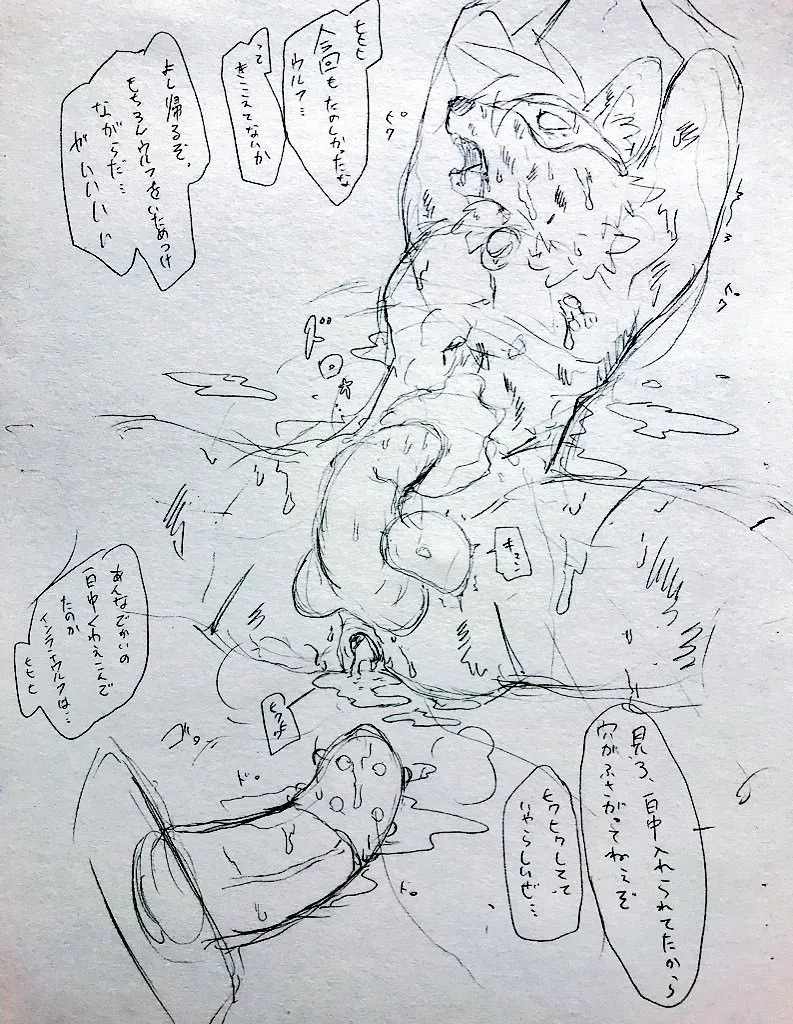 ヒヒヒ
今回もたのしかったな
ウルフ…
って
きこえてないか
よし帰るぞ、
もちろんウルフをいためつけ
ながらだ…
がいいいい
ズ
キュン
あんなでかいの
一日中くわえこんで
たのか
インランウルフは…
ヒヒヒ
見ろ、一日中入れられてたから
穴がふさがってねえぞ
ヒクヒクしてて
いやらしいぜ…